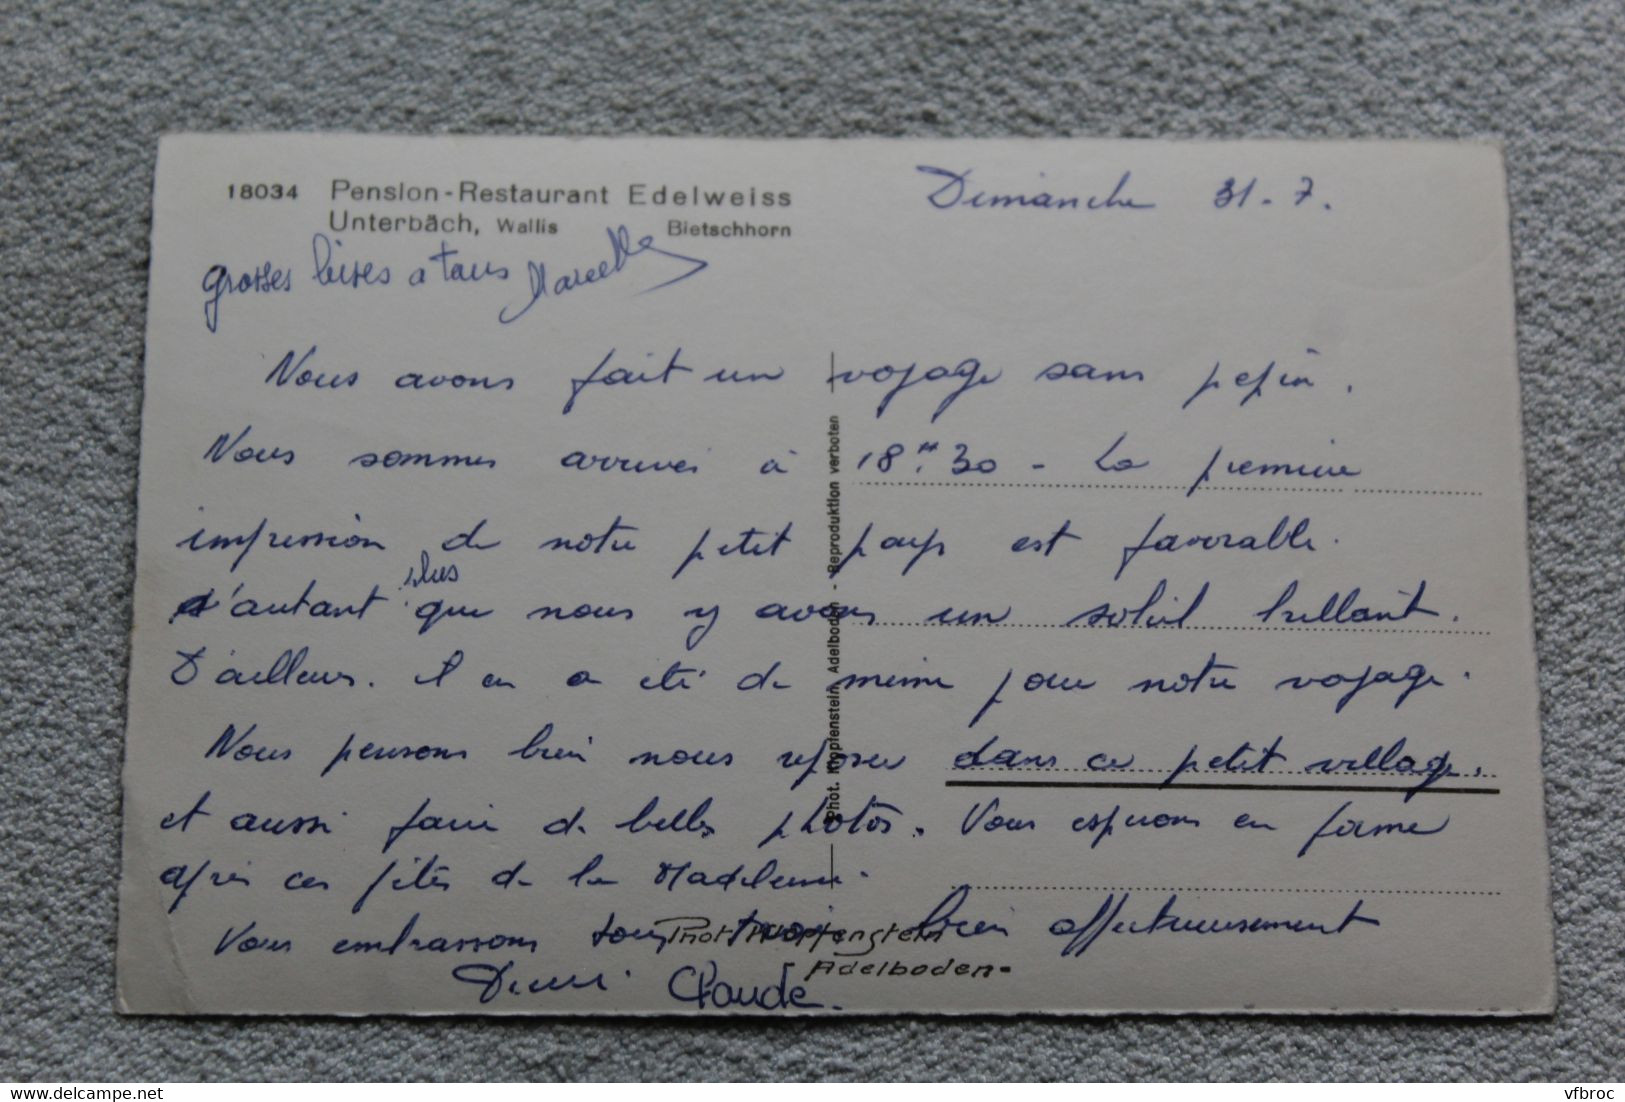 18034 Pension-Restaurant Edelweiss
Unterbäch, Wallis Bietschhorn
Dimanche 31-7.
grosses bises a tous Marcelle
Nous avons fait un voyage sans pépin.
Nous sommes arrivés à 18H30 - La première
impression de notre petit pays est favorable.
d'autant plus que nous y avons un soleil brillant.
D'ailleurs. il en a été de même pour notre voyage.
Nous pensons bien nous reposer dans ce petit village,
et aussi faire de belles photos. Vous espérons en forme
après ces fêtes de la Madeleine.
Vous embrassons tous trois bien affectueusement
Claude.
Phot. Klopfenstein, Adelboden - Reproduktion verboten
Phot. Klopfenstein
Adelboden-
delcampe.net
vfbroc